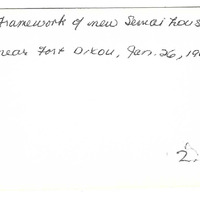 Framework of new Semai hous
near Fort Dixon, Jan. 26, 19
2.